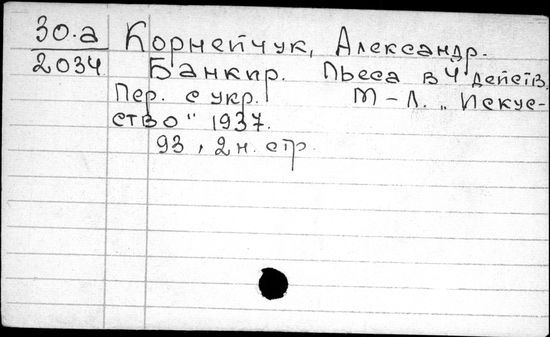 30.а Корнейчук, Александр.
2034 Банкир. Пьеса в 4 действ.
Пер. с укр. М-Л. „Искус-
ство" 1937.
93, 2 н. стр.